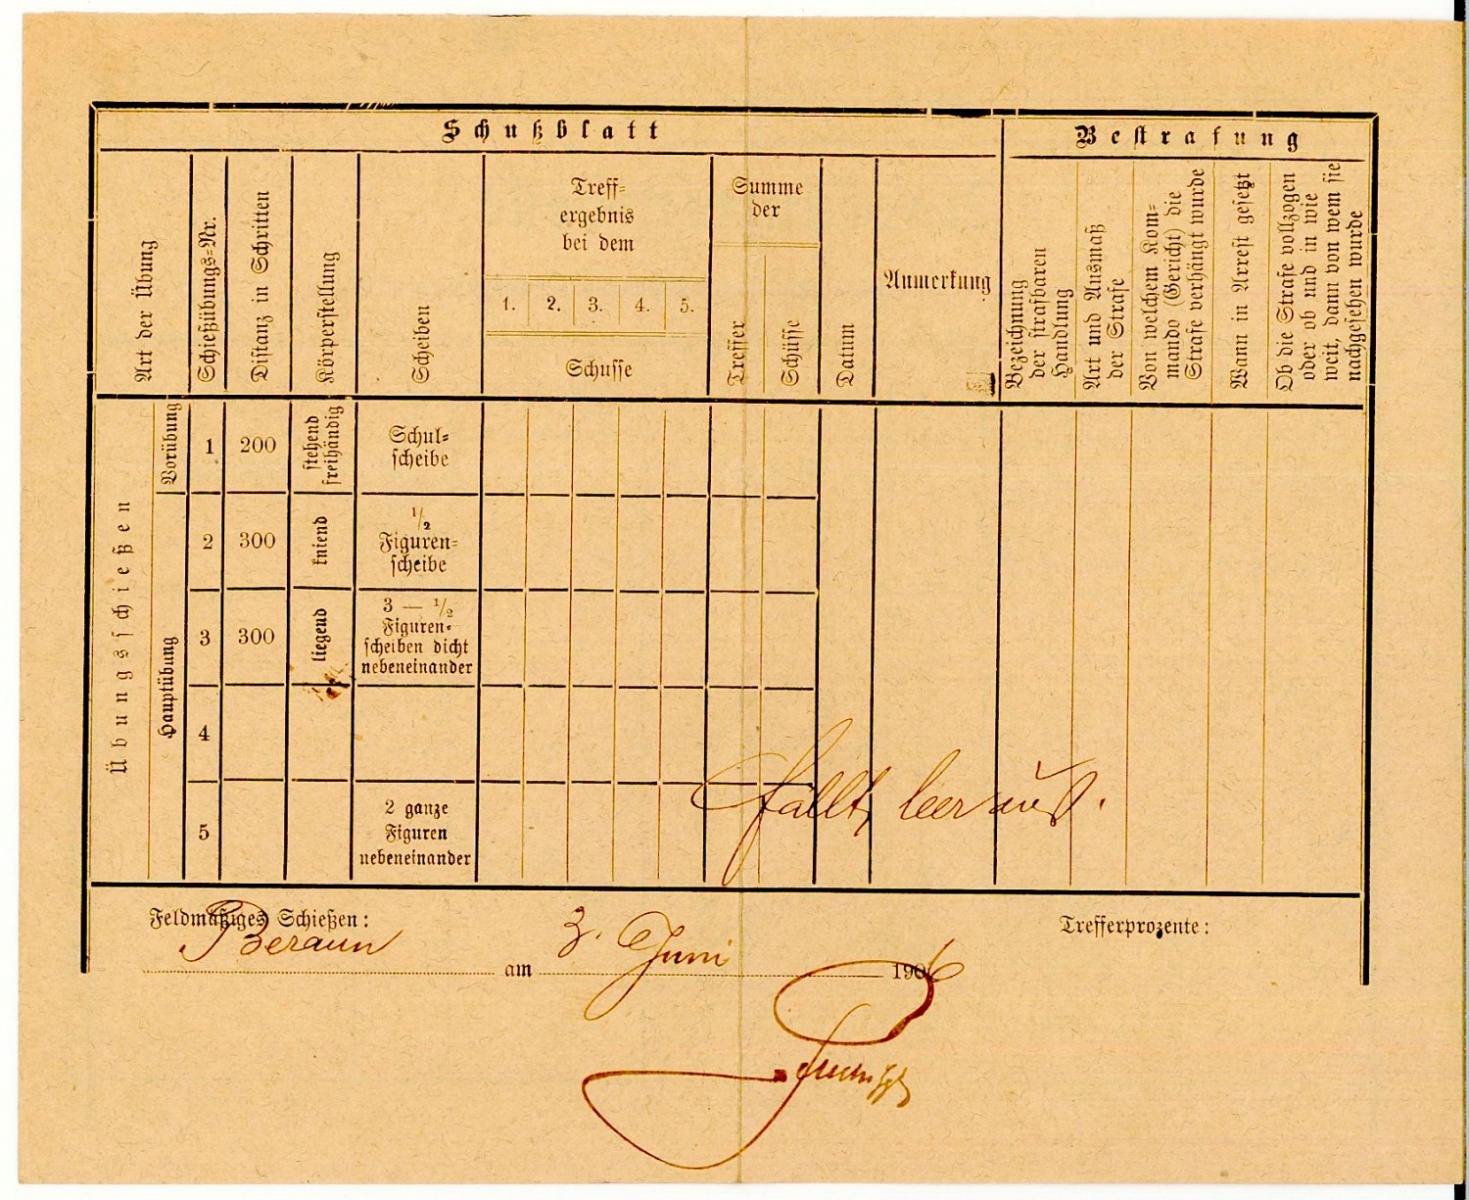 Schußblatt
Bestrafung
Art der Übung
Schießübungs-Nr.
Distanz in Schritten
Körperstellung
Scheiben
Treff-
ergebnis
bei dem
1. 2. 3. 4. 5.
Schusse
Summe
der
Treffer
Schüsse
Datum
Anmerkung
Bezeichnung
der strafbaren
Handlung
Art und Ausmaß
der Strafe
Von welchem Kom-
mando (Gericht) die
Strafe verhängt wurde
Wann in Arrest gesetzt
Ob die Strafe vollzogen
oder ob und in wie
weit, dann von wem sie
nachgesehen wurde
Übungsschießen
Vorübung
1 200
stehend
freihändig
Schul-
scheibe
Hauptübung
2 300
kniend
1/2
Figuren-
scheibe
3 300
liegend
3 — 1/2
Figuren-
scheiben dicht
nebeneinander
4
5
2 ganze
Figuren
nebeneinander
fällt leer aus.
Feldmäßiges Schießen:
Trefferprozente:
Beraun am 3. Juni 1906